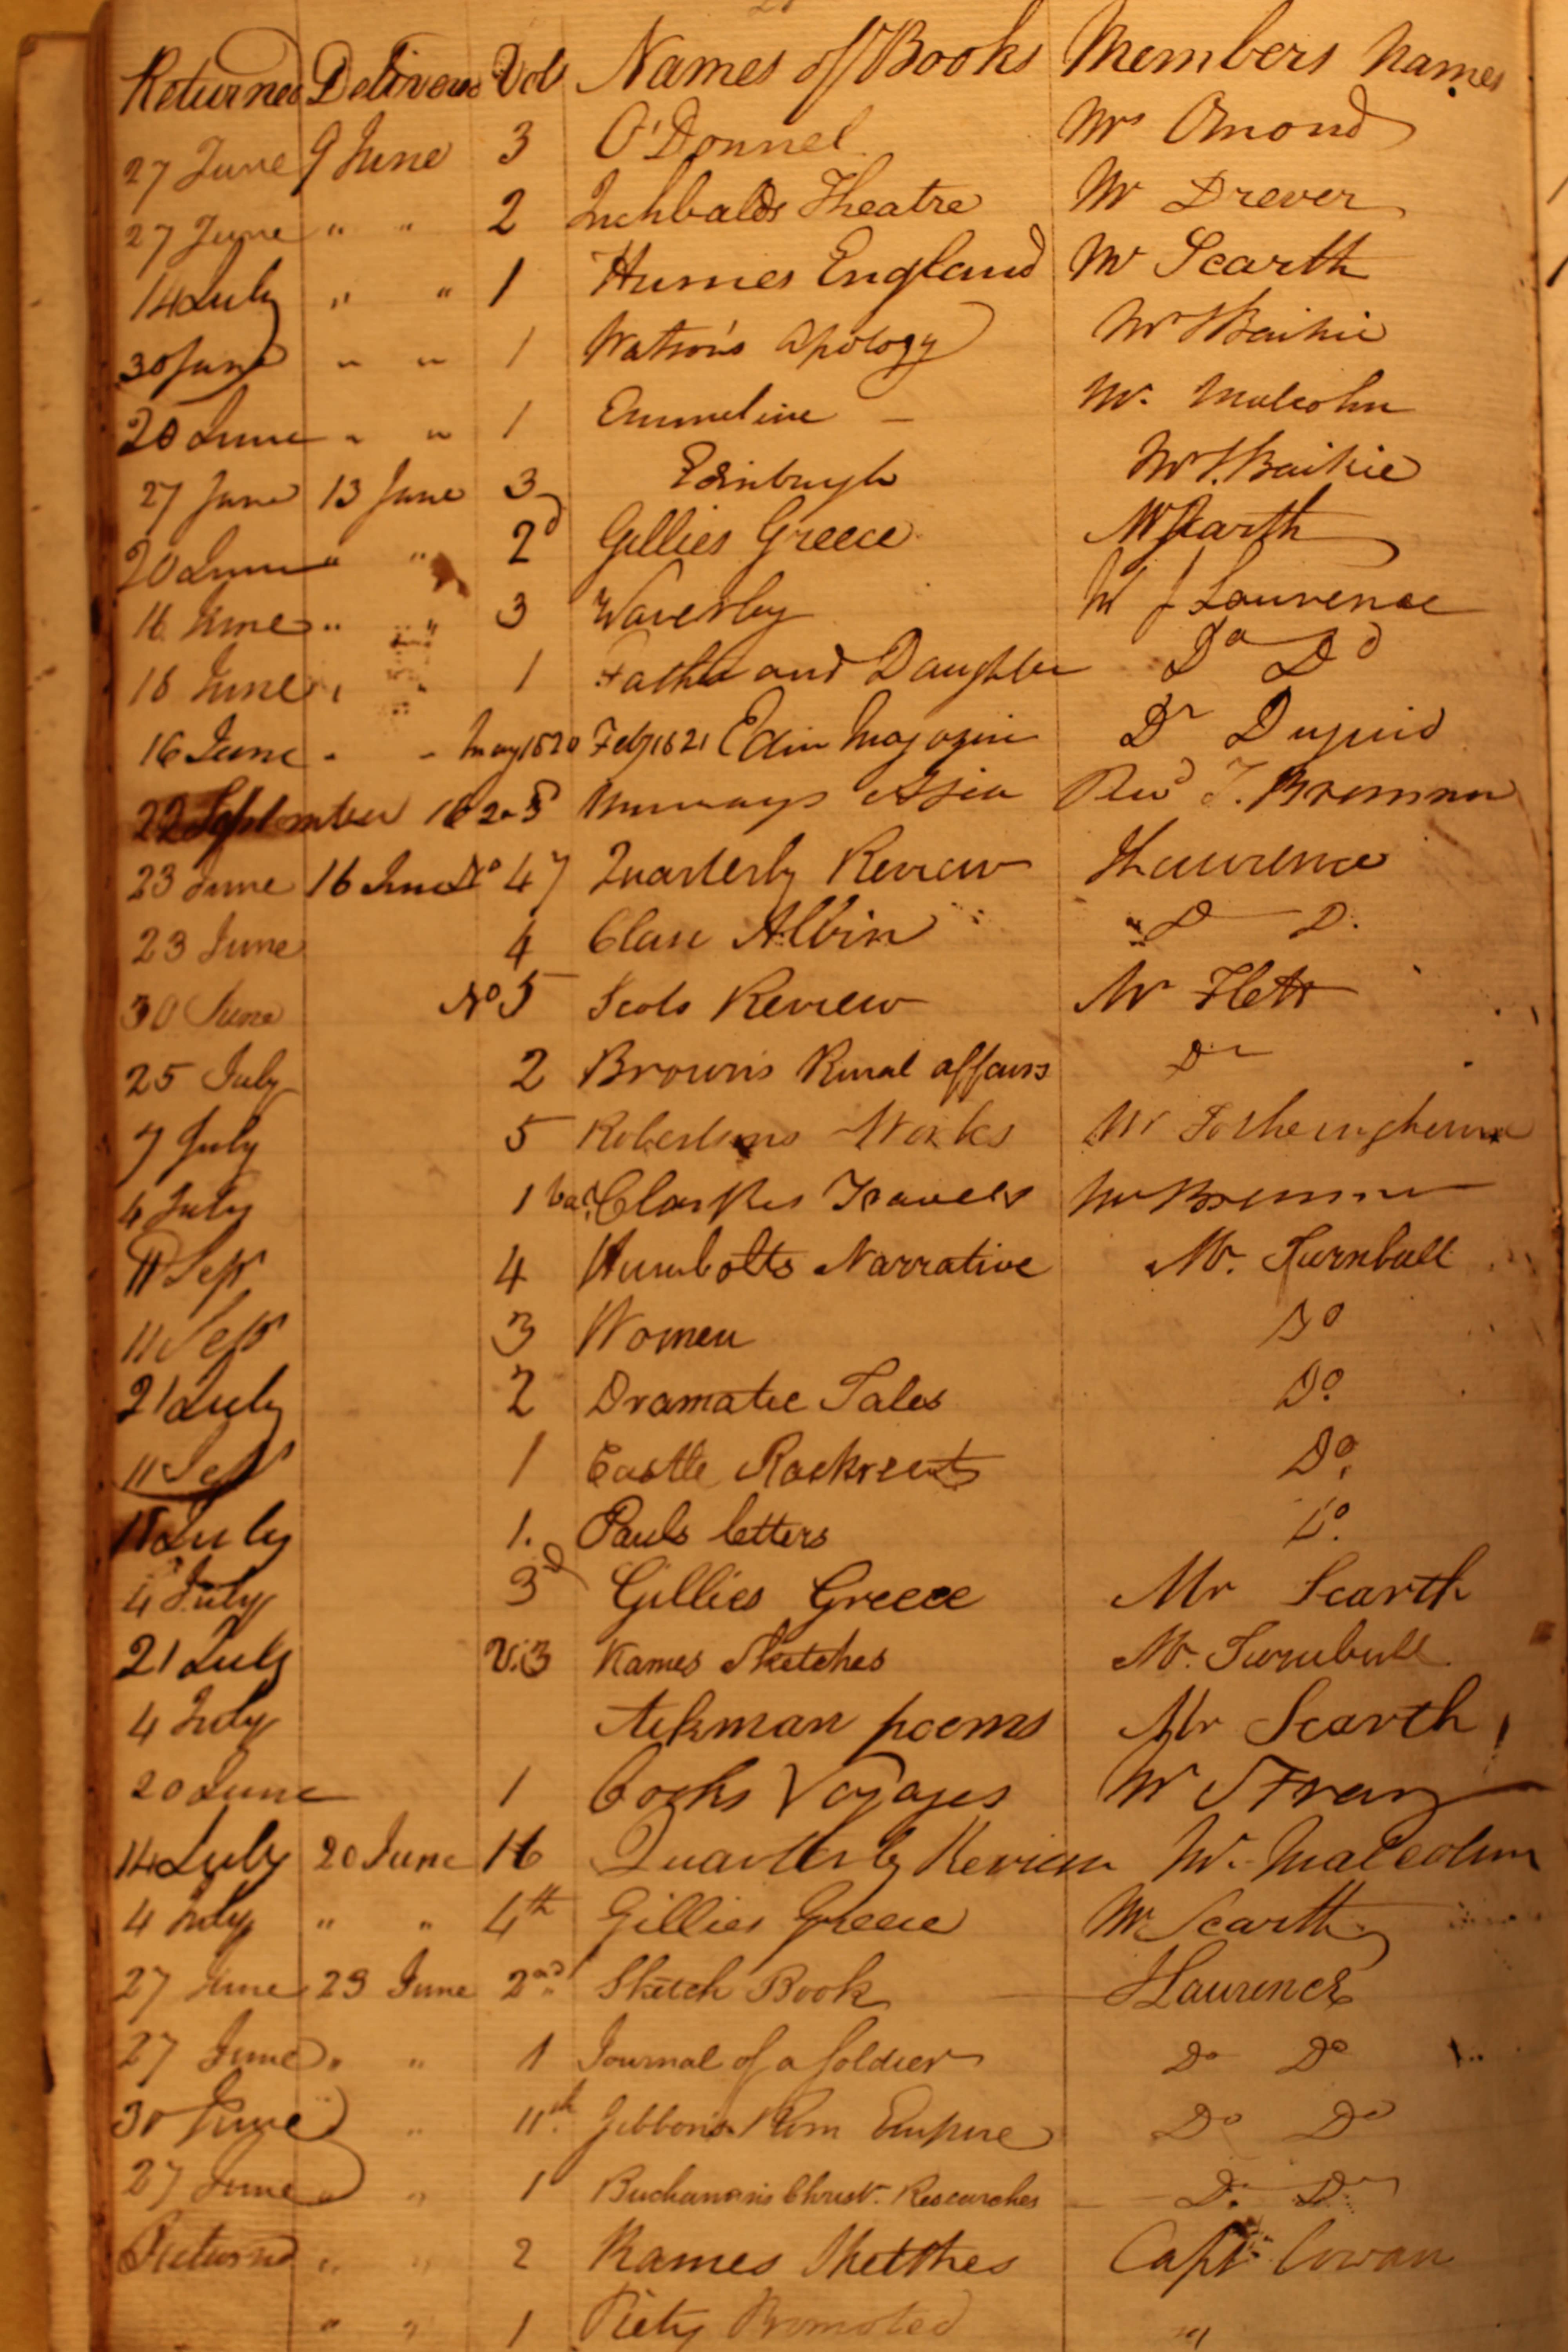 Returned Delivered Vols Names of Books Members Names
27 June 9 June 3 O'Donnel Mr Omond
27 June " " 2 Inchbalds Theatre Mr Drever
14 July " " 1 Humes England Mr Scarth
30 June " " 1 Watson's apology Mr Baikie
20 June " " 1 Emmeline - Mr. Malcolm
27 June 13 June 3 Edinburgh Mr Baikie
20 June " " 2d Gillies Greece Mr Scarth
16 June " " 3 Waverley J Laurence
18 June " " 1 Father and Daughter Do Do
16 June " " May 1820 Feby 1821 Edin Magazine Dr Duguid
22 September Murrays Asia Revd T. Bremner
23 June 16 June No 47 Quarterly Review J Laurence
23 June 4 Clan Albin D D.
30 June No 5 Scots Review Mr Flett
25 July 2 Browns Rural affairs Do
7 July 5 Robertsons Works Mr Fotheringhame
4 July 1 Clarkes Travels Mr Bremner
11 Sepr 4 Humbolts Narrative Mr. Turnbull
11 Sepr 3 Women Do
21 July 2 Dramatic Tales Do.
11 Sepr 1 Castle Rackrent Do.
July 1. Pauls letters Do.
4 July 3d Gillies Greece Mr Scarth
21 July V.3 Kames Sketches Mr. Turnbull
4 July Aikman poems Mr Scarth
20 June 1 Cooks Voyages Mr Strang
14 July 20 June 16 Quarterly Review Mr. Malcolm
4 July " " 4th Gillies Greece Mr Scarth
27 June 23 June 2nd Sketch Book J Laurence
27 June " " 1 Journal of a Soldier Do Do
30 June " 11th Gibbons Rom Empire Do Do
27 June " " 1 Buchanan's Christn. Researches Do. Do
Returned " " 2 Kames Sketches Capt Cowan
" " 1 Piety Promoted "